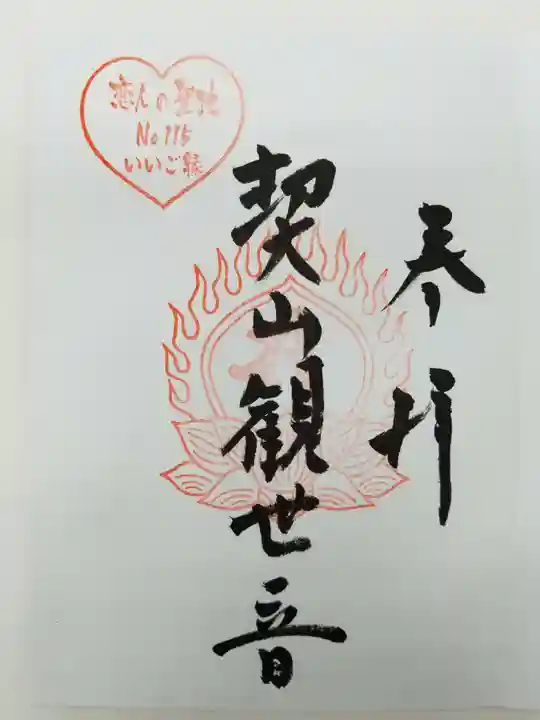 恋人の聖地
No 115
いいご縁
奉拝
契山観世音